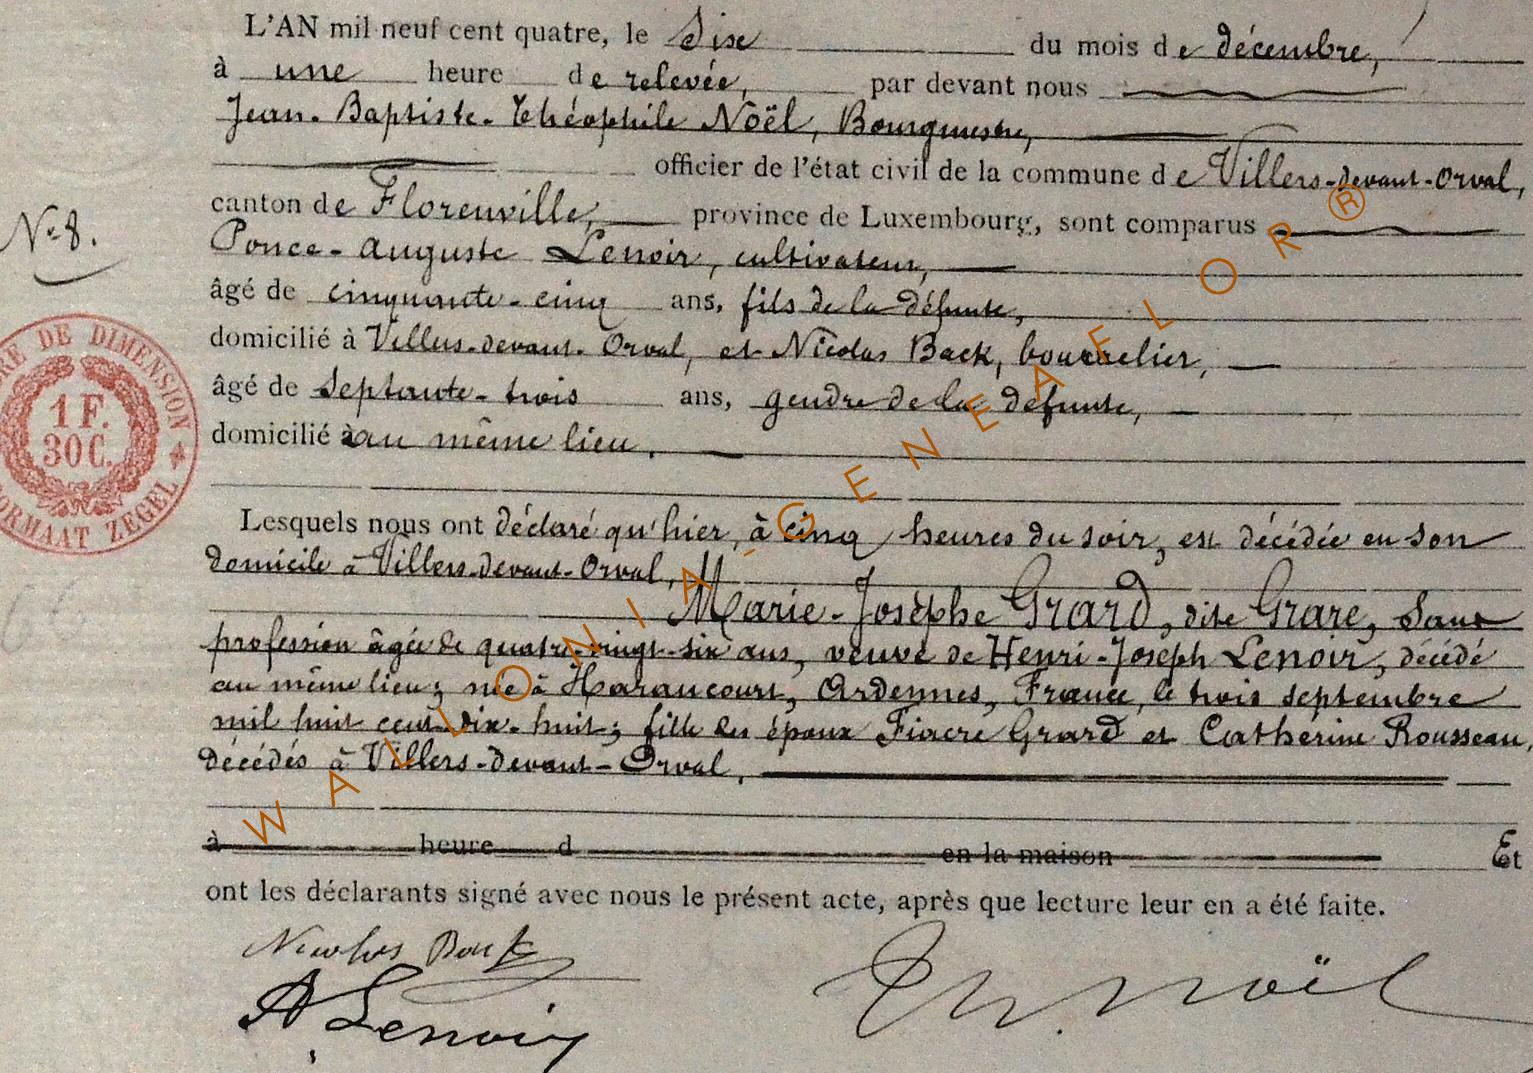 L'AN mil neuf cent quatre, le six du mois de décembre,
à une heure de relevée, par devant nous
Jean-Baptiste-Théophile Noël, Bourgmestre,
officier de l'état civil de la commune de Villers-devant-Orval,
canton de Florenville, province de Luxembourg, sont comparus
N° 8.
Ponce-Auguste Lenoir, cultivateur,
âgé de cinquante-cinq ans, fils de la défunte,
domicilié à Villers-devant-Orval, et Nicolas Back, bourrelier,
âgé de septante-trois ans, gendre de la défunte,
domicilié au même lieu.
TIMBRE DE DIMENSION
1 F.
30 C.
FORMAAT ZEGEL
Lesquels nous ont déclaré qu'hier, à cinq heures du soir, est décédée en son
domicile à Villers-devant-Orval,
Marie-Josèphe Grard, dite Grare, sans
profession âgée de quatre-vingt-six ans, veuve de Henri-Joseph Lenoir, décédé
au même lieu; née à Haraucourt, Ardennes, France, le trois septembre
mil huit cent dix-huit; fille des époux Fiacre Grard et Catherine Rousseau,
décédés à Villers-devant-Orval.
à heure d en la maison Et
ont les déclarants signé avec nous le présent acte, après que lecture leur en a été faite.
Nicolas Back
A Lenoir
Th. Noël
WALLONIA-GENEAFLOR®